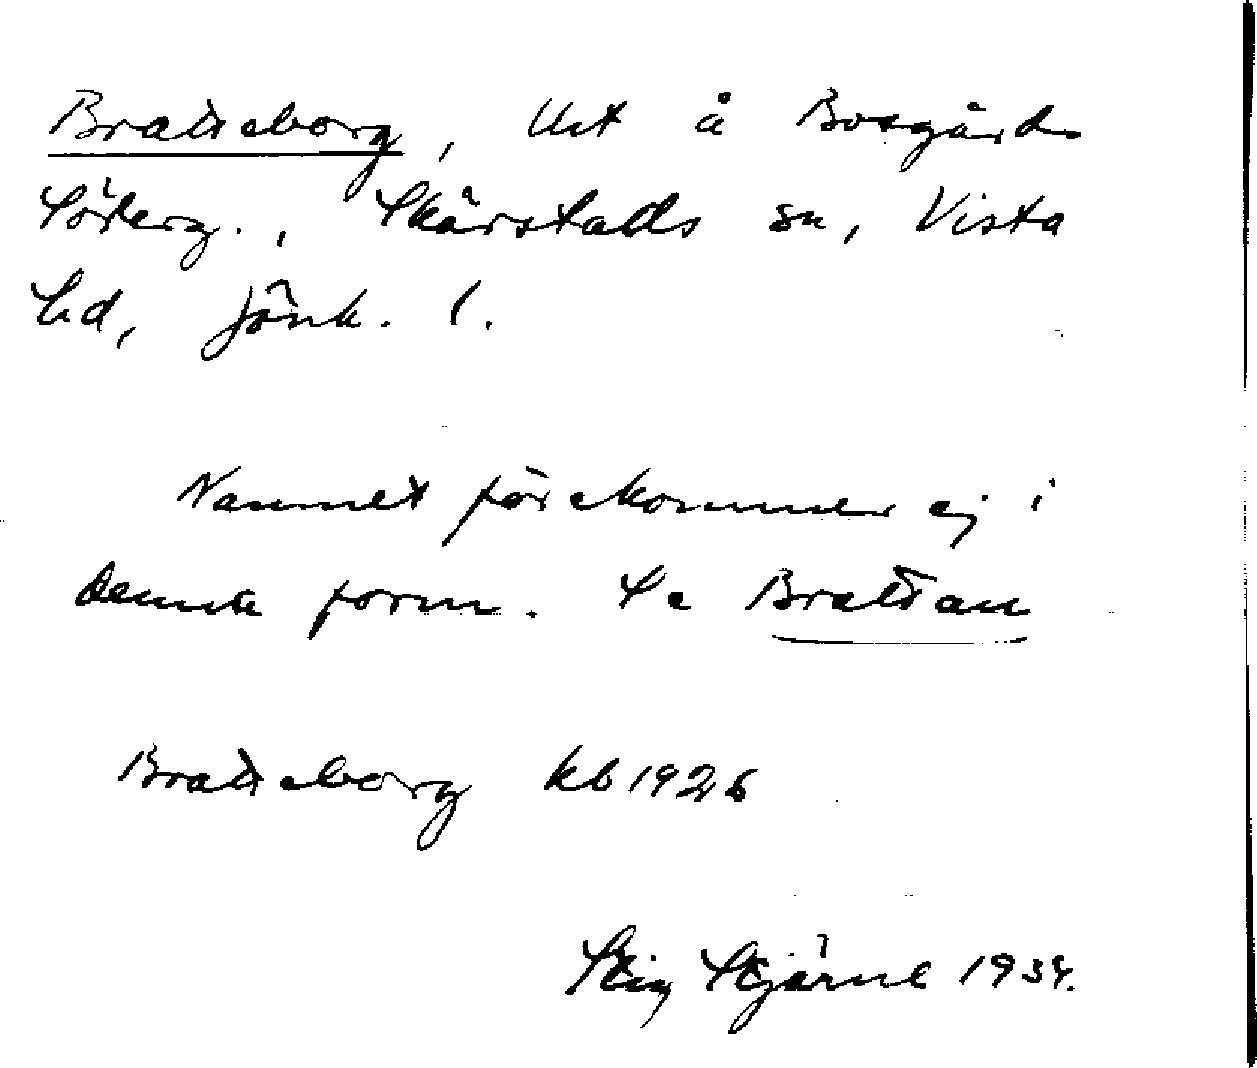 Bratteborg, Uct å Bosgårds
Söderg., Skärstads sn, Vista
hd, Jönk. l.
Namnet förekommer ej i
denna form. Se Brattan
Bratteborg kb 1926
Stig Stjärne 1934.